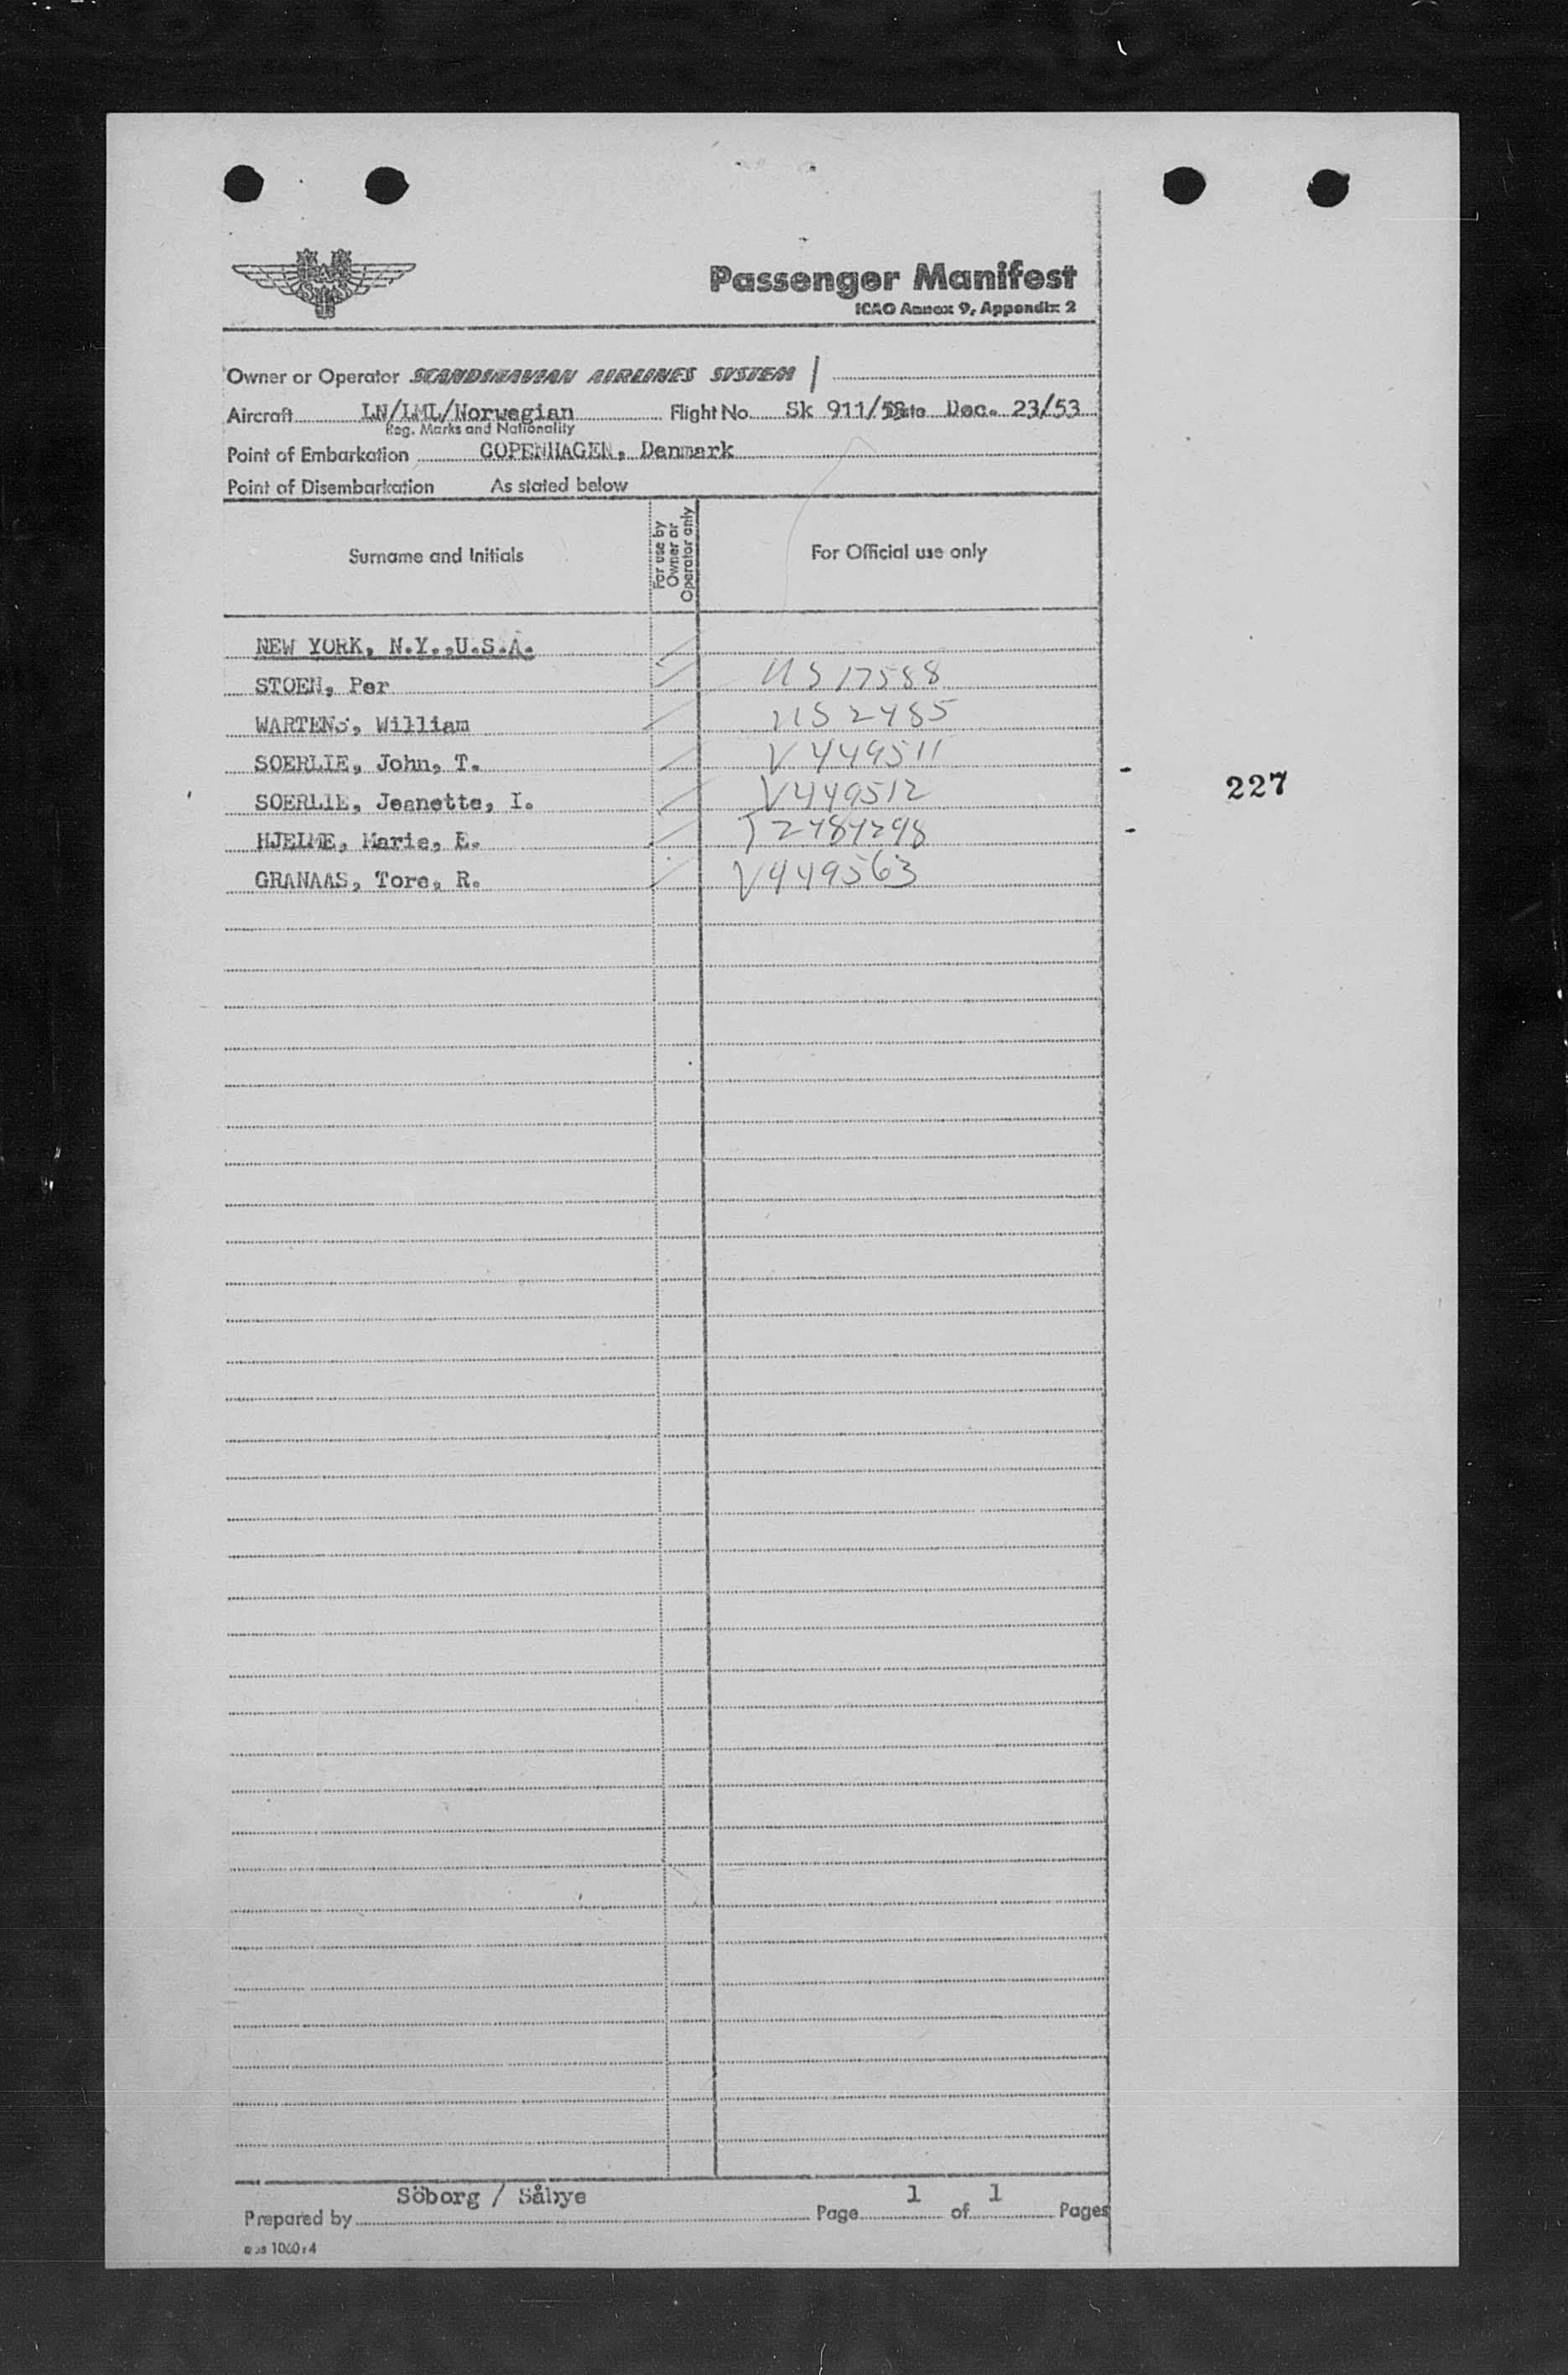 Passenger Manifest
ICAO Annex 9, Appendix 2
Owner or Operator SCANDINAVIAN AIRLINES SYSTEM
Aircraft LN/LML/Norwegian Flight No. Sk 911/ Date Dec. 23/53
Reg. Marks and Nationality
Point of Embarkation COPENHAGEN, Denmark
Point of Disembarkation As stated below
Surname and Initials For use by Owner or Operator only For Official use only
NEW YORK, N.Y.,U.S.A.
STOEN, Per US 17588
WARTENS, William US 2485
SOERLIE, John, T. V 449511
SOERLIE, Jeanette, I. V449512
227
HJELME, Marie, E.
GRANAAS, Tore, R. V449563
Söborg / Såbye
Prepared by Page 1 of 1 Pages